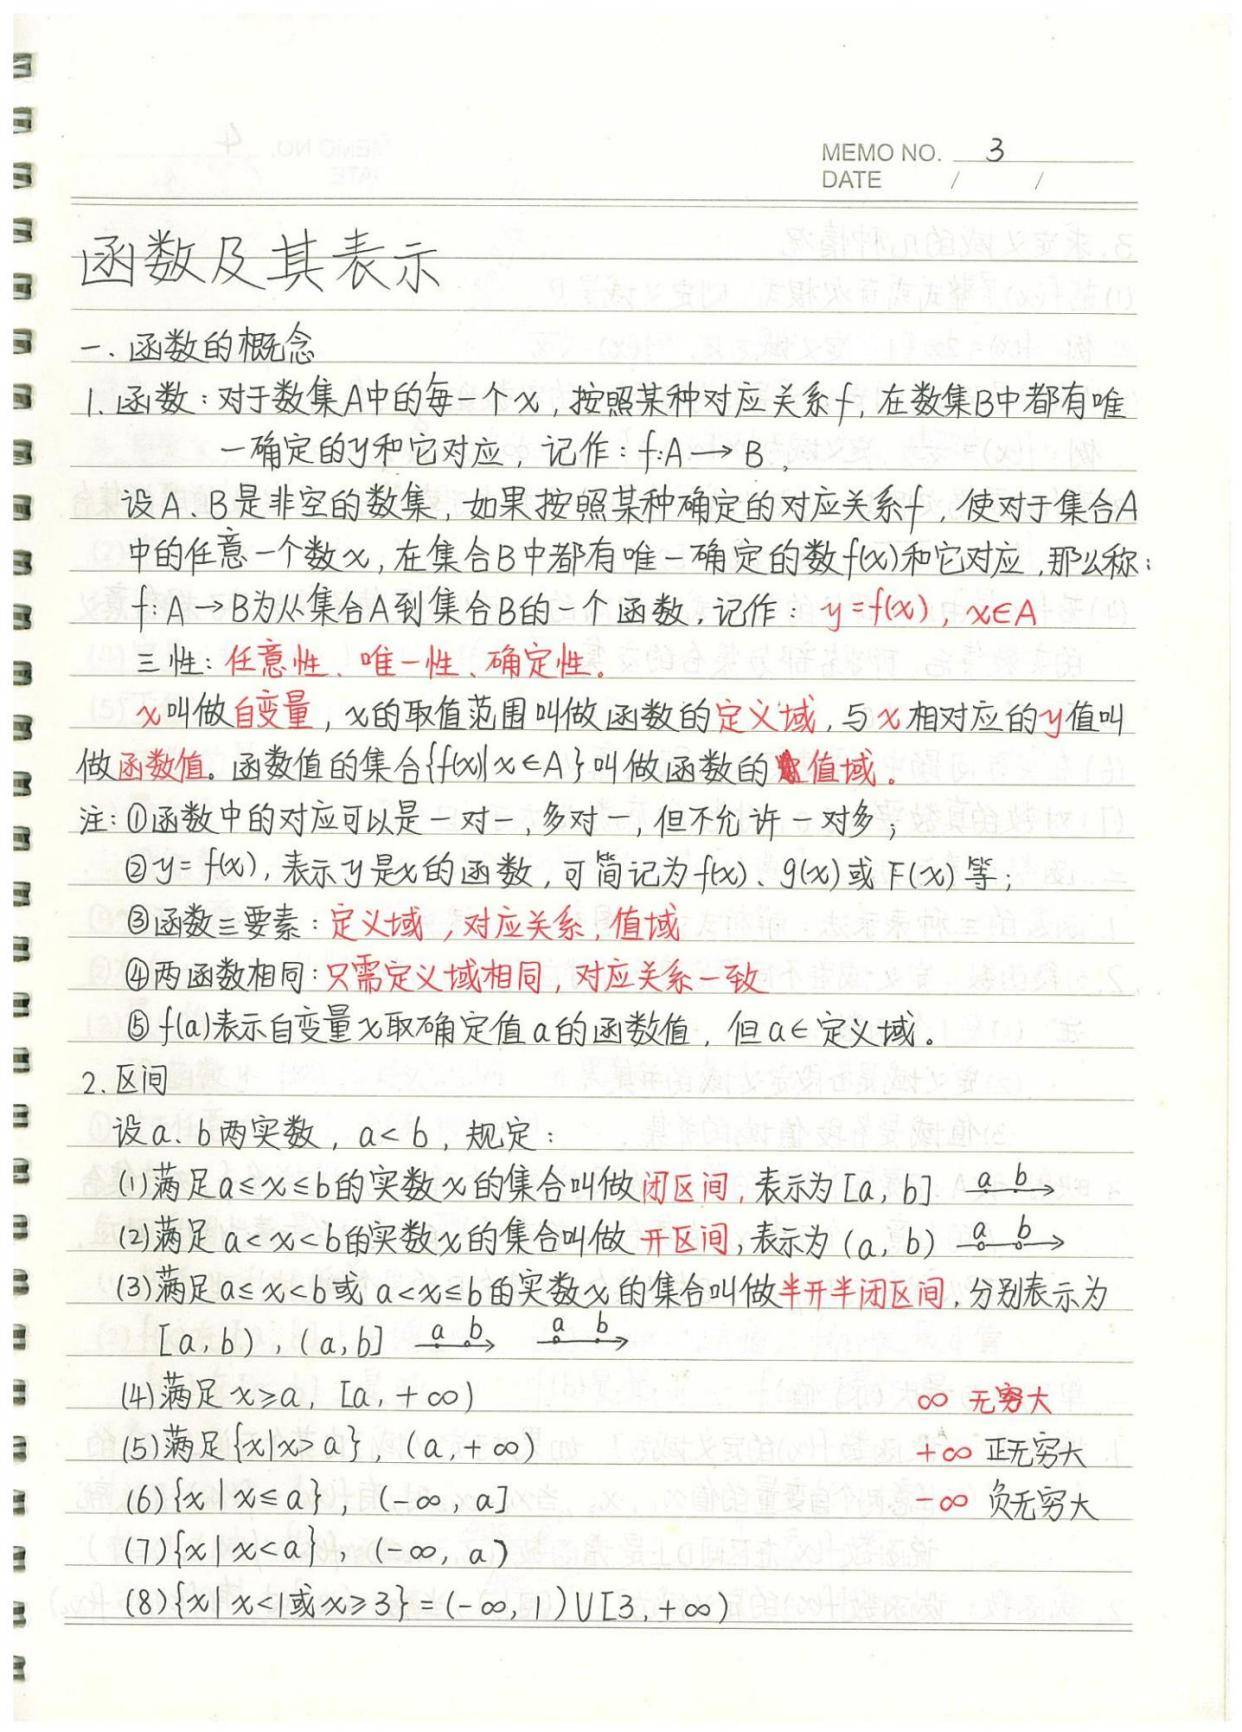 MEMO NO. 3
DATE / /
函数及其表示
一、函数的概念
1. 函数：对于数集A中的每一个x，按照某种对应关系f，在数集B中都有唯
一确定的y和它对应，记作：f:A→B。
设A、B是非空的数集，如果按照某种确定的对应关系f，使对于集合A
中的任意一个数x，在集合B中都有唯一确定的数f(x)和它对应，那么称：
f:A→B为从集合A到集合B的一个函数，记作：y=f(x)，x∈A
三性：任意性、唯一性、确定性。
x叫做自变量，x的取值范围叫做函数的定义域，与x相对应的y值叫
做函数值。函数值的集合{f(x)|x∈A}叫做函数的值域。
注：①函数中的对应可以是一对一，多对一，但不允许一对多；
②y=f(x)，表示y是x的函数，可简记为f(x)、g(x)或F(x)等；
③函数三要素：定义域，对应关系，值域
④两函数相同：只需定义域相同，对应关系一致
⑤f(a)表示自变量x取确定值a的函数值，但a∈定义域。
2. 区间
设a、b两实数，a<b，规定：
(1)满足a≤x≤b的实数x的集合叫做闭区间，表示为[a,b] a b
(2)满足a<x<b的实数x的集合叫做开区间，表示为(a,b) a b
(3)满足a≤x<b或a<x≤b的实数x的集合叫做半开半闭区间，分别表示为
[a,b)，(a,b] a b a b
(4)满足x≥a，[a,+∞) ∞ 无穷大
(5)满足{x|x>a}，(a,+∞) +∞ 正无穷大
(6){x|x≤a}，(-∞,a] -∞ 负无穷大
(7){x|x<a}，(-∞,a)
(8){x|x<1或x≥3}=(-∞,1)∪[3,+∞)